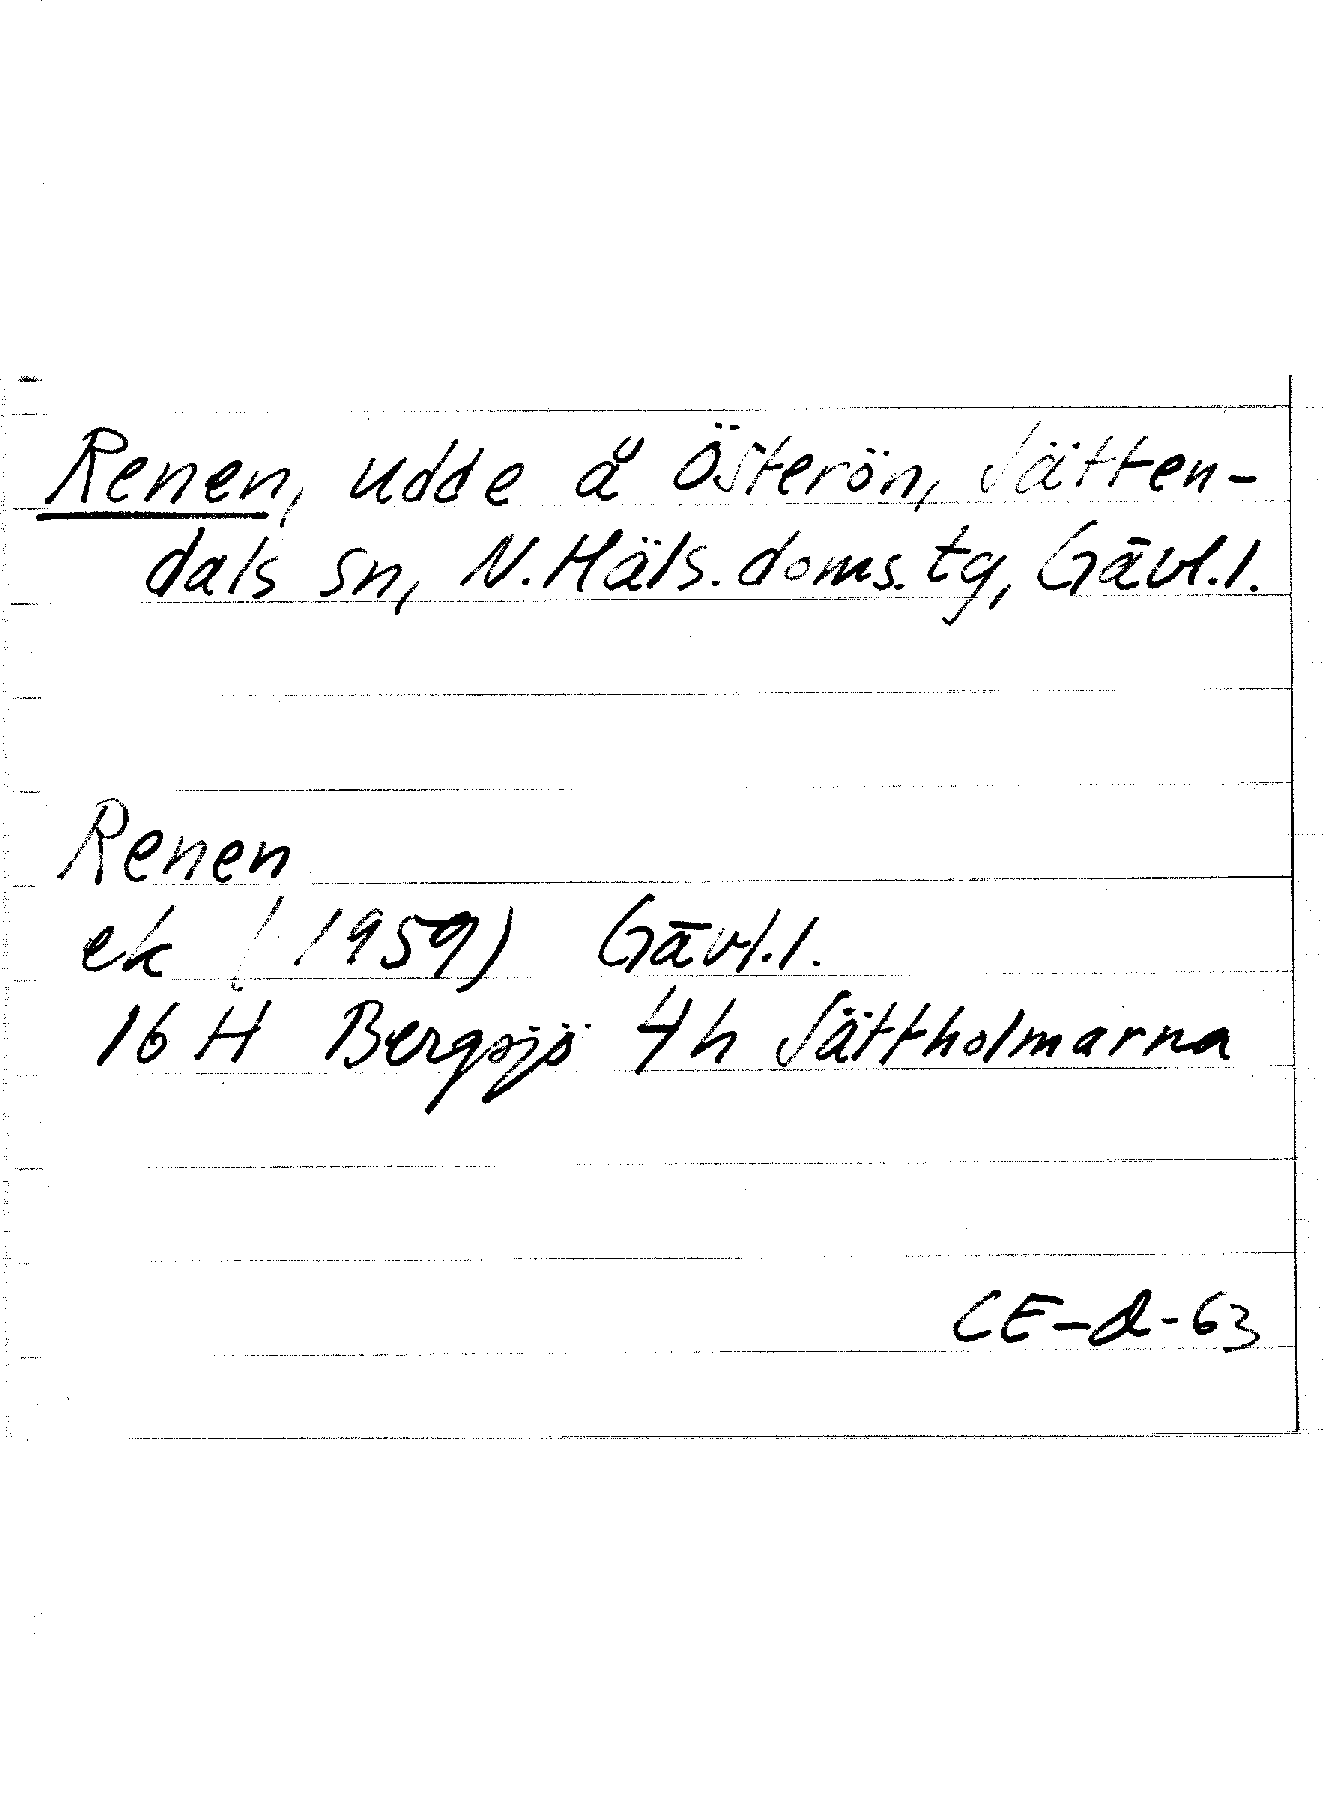 Renen, udde å Österön, Jätten-
dals sn, N. Häls. doms. tg, Gävl. l.
Renen
ek (1959) Gävl. l.
16 H Bergsjö 4 h Jättholmarna
CE-d-63